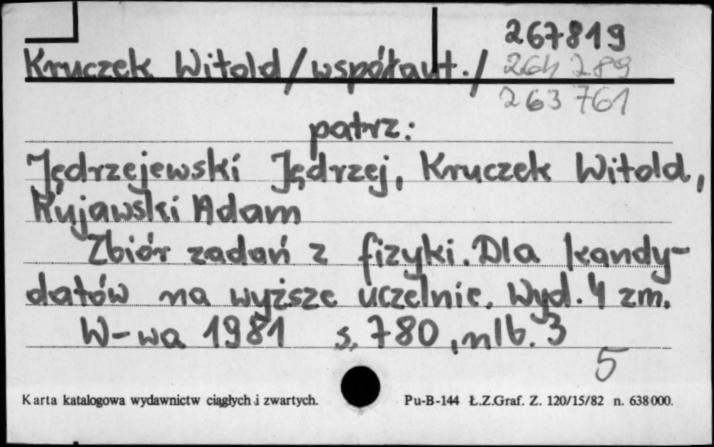 267819
Kruczek Witold /współaut./ 264 289
263 761
patrz:
Jędrzejewski Jędrzej, Kruczek Witold,
Kujawski Adam
Zbiór zadań z fizyki. Dla kandy-
datów na wyższe uczelnie. Wyd. 4 zm.
W-wa 1981 s. 780, nlb. 3
5
Karta katalogowa wydawnictw ciągłych i zwartych. Pu-B-144 Ł.Z.Graf. Z. 120/15/82 n. 638000.